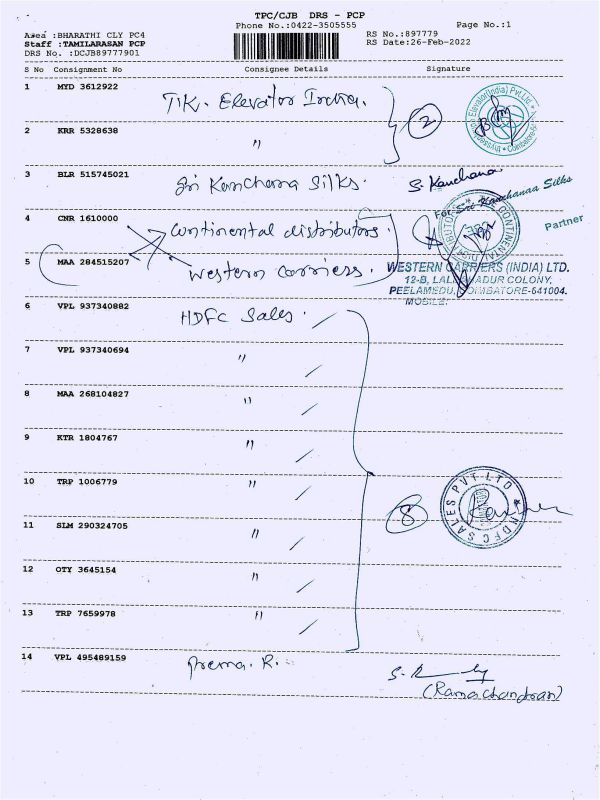 TPC/CJB DRS - PCP
Phone No.:0422-3505555
Page No.:1
Area :BHARATHI CLY PC4
RS No.:897779
Staff :TAMILARASAN PCP
RS Date:26-Feb-2022
DRS No. :DCJB89777901
S No Consignment No Consignee Details Signature
1 MYD 3612922 T.K. Elevator India.
2
2 KRR 5328638 "
3 BLR 515745021 Sri Kanchana Silks. S. Kanchana
For Sri Kanchanaa Silks
Partner
4 CNR 1610000 Continental distributors.
5 MAA 284515207 Western carriers.
WESTERN CARRIERS (INDIA) LTD.
12-B, LAL BAHADUR COLONY,
PEELAMEDU, COIMBATORE-641004.
MOBILE:
6 VPL 937340882 HDFC Sales.
7 VPL 937340694 "
8 MAA 268104827 "
9 KTR 1804767 "
10 TRP 1006779 "
8
HDFC SALES PVT LTD
11 SLM 290324705 "
12 OTY 3645154 "
13 TRP 7659978 "
14 VPL 495489159 Prema. R.
(Ramachandran)